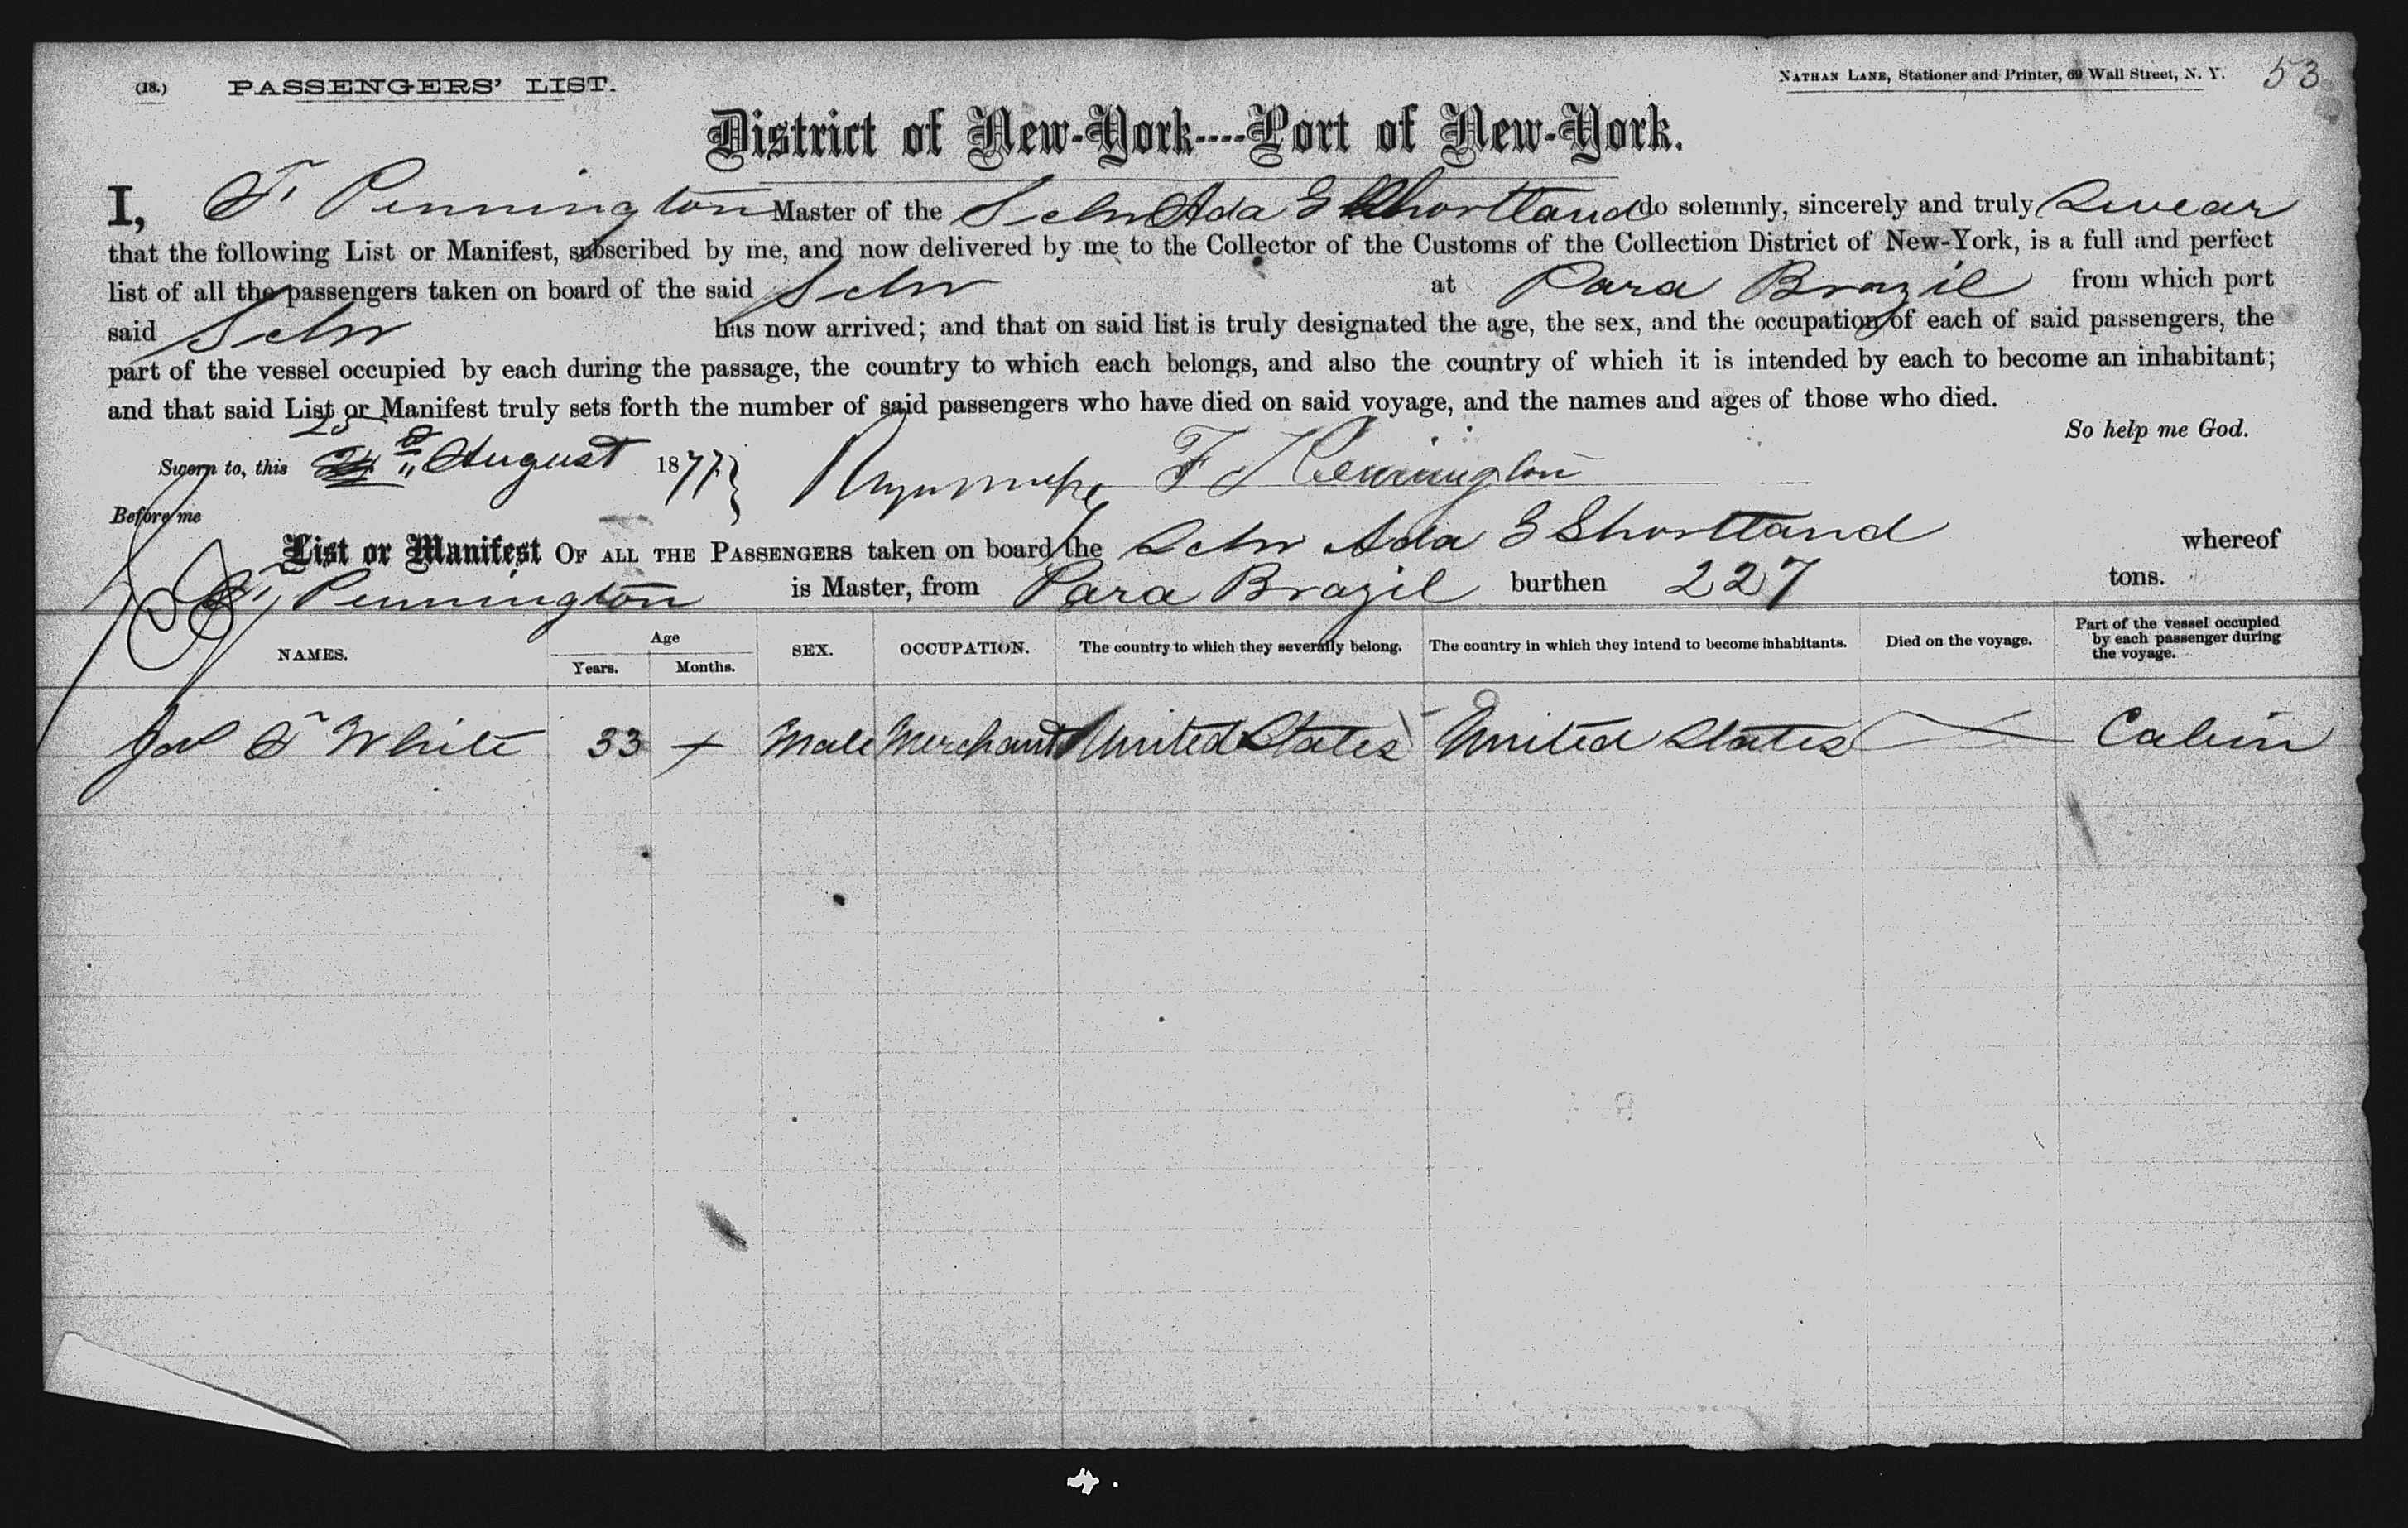 (18.) PASSENGERS' LIST. NATHAN LANE, Stationer and Printer, 69 Wall Street, N. Y. 53
District of New-York----Port of New-York.
I, F. Pennington Master of the Schr Ada E Shortland do solemnly, sincerely and truly Swear
that the following List or Manifest, subscribed by me, and now delivered by me to the Collector of the Customs of the Collection District of New-York, is a full and perfect
list of all the passengers taken on board of the said Schr at Para Brazil from which port
said Schr has now arrived; and that on said list is truly designated the age, the sex, and the occupation of each of said passengers, the
part of the vessel occupied by each during the passage, the country to which each belongs, and also the country of which it is intended by each to become an inhabitant;
and that said List or Manifest truly sets forth the number of said passengers who have died on said voyage, and the names and ages of those who died.
So help me God.
Sworn to, this 25 August 1877 F Pennington
Before me
List or Manifest OF ALL THE PASSENGERS taken on board the Schr Ada E Shortland whereof
F. Pennington is Master, from Para Brazil burthen 227 tons.
NAMES. Age Years. Months. SEX. OCCUPATION. The country to which they severally belong. The country in which they intend to become inhabitants. Died on the voyage. Part of the vessel occupied by each passenger during the voyage.
F White 33 Male Merchant United States United States Cabin